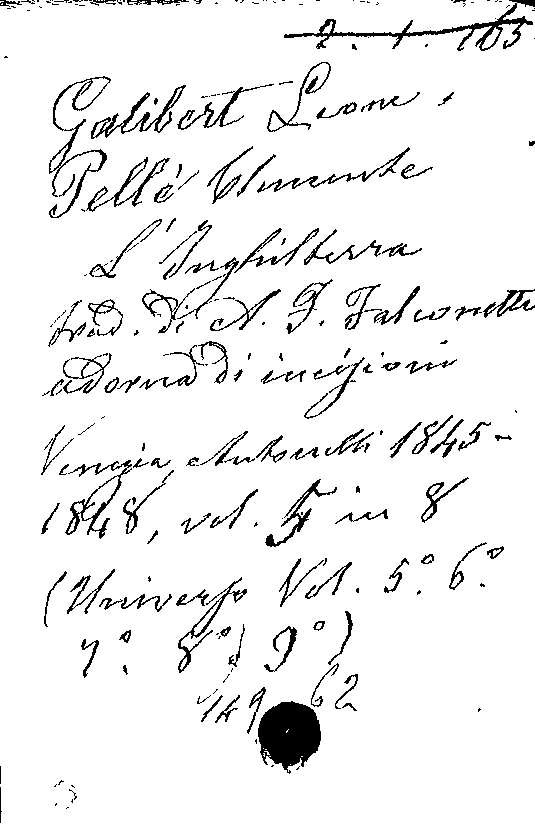 2. 1. 165
Galibert Leone e
Pellè Clemente
L'Inghilterra
trad. di A. F. Falconetti
adorna di incisioni
Venezia, Antonelli 1845-
1848, vol. 5 in 8
(Universo Vol. 5° 6°
7°. 8°) 9°)
149 62